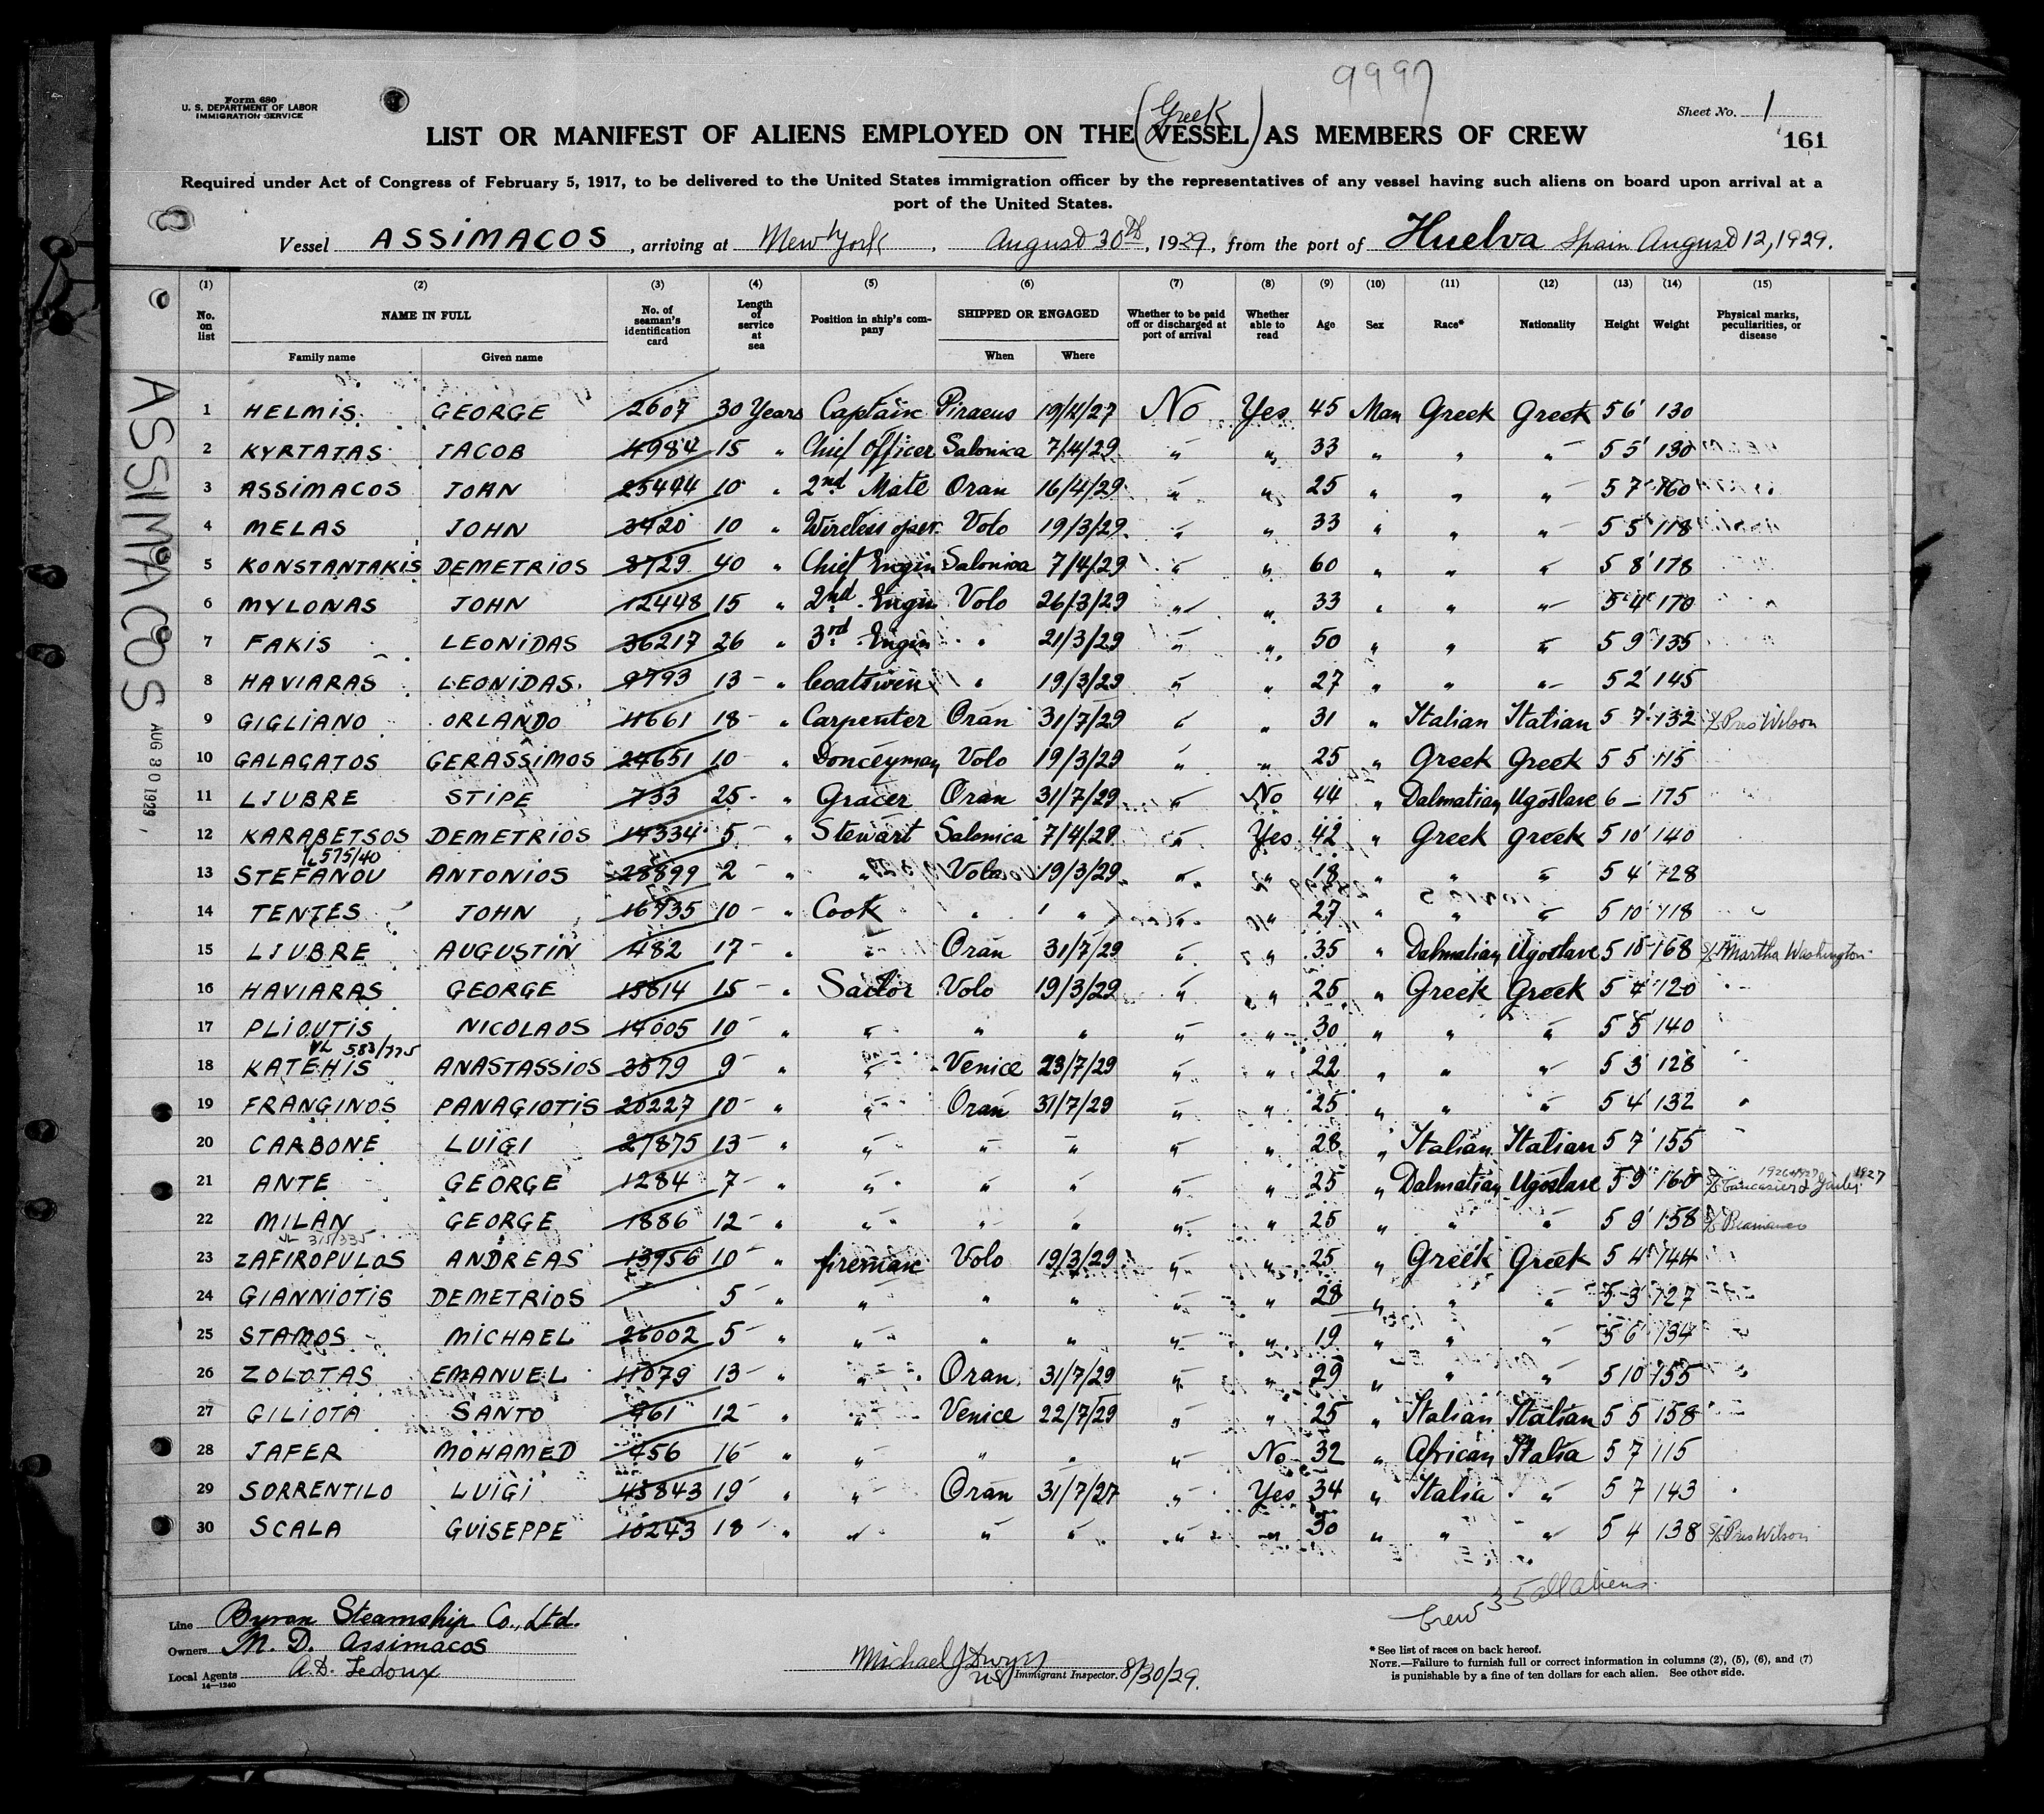 9997
Form 680
U. S. DEPARTMENT OF LABOR
IMMIGRATION SERVICE
Sheet No. 1
161
Greek
LIST OR MANIFEST OF ALIENS EMPLOYED ON THE (VESSEL) AS MEMBERS OF CREW
Required under Act of Congress of February 5, 1917, to be delivered to the United States immigration officer by the representatives of any vessel having such aliens on board upon arrival at a
port of the United States.
Vessel ASSIMACOS, arriving at New York, August 30th, 1929, from the port of Huelva Spain August 12, 1929.
(1) (2) (3) (4) (5) (6) (7) (8) (9) (10) (11) (12) (13) (14) (15)
No. on list NAME IN FULL No. of seaman's identification card Length of service at sea Position in ship's company SHIPPED OR ENGAGED Whether to be paid off or discharged at port of arrival Whether able to read Age Sex Race* Nationality Height Weight Physical marks, peculiarities, or disease
Family name Given name When Where
1 HELMIS GEORGE 2607 30 Years Captain Piraeus 19/4/27 No Yes 45 Man Greek Greek 5 6' 130
2 KYRTATAS JACOB 4984 15 " Chief Officer Salonica 7/4/29 " " 33 " " " 5 5' 130
3 ASSIMACOS JOHN 25444 10 " 2nd Mate Oran 16/4/29 " " 25 " " " 5 7' 160
4 MELAS JOHN 3420 10 " Wireless oper. Volo 19/3/29 " " 33 " " " 5 5' 118
5 KONSTANTAKIS DEMETRIOS 8729 40 " Chief Engin Salonica 7/4/29 " " 60 " " " 5 8' 178
6 MYLONAS JOHN 12448 15 " 2nd Engin Volo 26/3/29 " " 33 " " " 5 4' 170
7 FAKIS LEONIDAS 36217 26 " 3rd Engin " 21/3/29 " " 50 " " " 5 9' 135
8 HAVIARAS LEONIDAS 9793 13 " Boatswen " 19/3/29 " " 27 " " " 5 2' 145
9 GIGLIANO ORLANDO 4661 18 " Carpenter Oran 31/7/29 " " 31 " Italian Italian 5 7' 132 S/S Pres Wilson
10 GALAGATOS GERASSIMOS 24651 10 " Donceyman Volo 19/3/29 " " 25 " Greek Greek 5 5' 115
11 LJUBRE STIPE 733 25 " Gracer Oran 31/7/29 " No 44 " Dalmatian Ugoslave 6 – 175
12 KARABETSOS DEMETRIOS 14334 5 " Stewart Salonica 7/4/29 " Yes 42 " Greek Greek 5 10' 140
VL 575/40
13 STEFANOU ANTONIOS 28899 2 " " Volo 19/3/29 " " 18 " " " 5 4' 128
14 TENTES JOHN 16735 10 " Cook " " " " 27 " " " 5 10' 118
15 LJUBRE AUGUSTIN 482 17 " " Oran 31/7/29 " " 35 " Dalmatian Ugoslave 5 10 168 S/S Martha Washington
16 HAVIARAS GEORGE 15814 15 " Sailor Volo 19/3/29 " " 25 " Greek Greek 5 4' 120
17 PLIOUTIS NICOLAOS 14005 10 " " " " " " 30 " " " 5 5' 140
VL 583/775
18 KATEHIS ANASTASSIOS 3579 9 " " Venice 23/7/29 " " 22 " " " 5 3' 128
19 FRANGINOS PANAGIOTIS 20227 10 " " Oran 31/7/29 " " 25 " " " 5 4' 132
20 CARBONE LUIGI 27875 13 " " " " " " 28 " Italian Italian 5 7' 155
21 ANTE GEORGE 1284 7 " " " " " " 25 " Dalmatian Ugoslave 5 9' 160 1927
22 MILAN GEORGE 1886 12 " " " " " " 25 " " " 5 9' 158
VL 315/335
23 ZAFIROPULOS ANDREAS 13956 10 " fireman Volo 19/3/29 " " 25 " Greek Greek 5 4' 144
24 GIANNIOTIS DEMETRIOS 5 " " " " " " 28 " " " 5 3' 127
25 STAMOS MICHAEL 26002 5 " " " " " " 19 " " " 5 6' 134
26 ZOLOTAS EMANUEL 11079 13 " " Oran 31/7/29 " " 29 " " " 5 10' 155
27 GILIOTA SANTO 961 12 " " Venice 22/7/29 " " 25 " Italian Italian 5 5 158
28 JAFER MOHAMED 456 16 " " " " " No 32 " African Italia 5 7 115
29 SORRENTILO LUIGI 43843 19 " " Oran 31/7/27 " Yes 34 " Italia " 5 7 143
30 SCALA GUISEPPE 10243 18 " " " " " " 30 " " " 5 4 138 S/S Pres Wilson
ASSIMACOS
AUG 30 1929
Crew 35 all aliens
Line Byron Steamship Co., Ltd.
Owners M. D. Assimacos
Local Agents A.D. Ledoux
14—1240
Michael J Dwyer
US Immigrant Inspector. 8/30/29.
* See list of races on back hereof.
NOTE.—Failure to furnish full or correct information in columns (2), (5), (6), and (7)
is punishable by a fine of ten dollars for each alien. See other side.